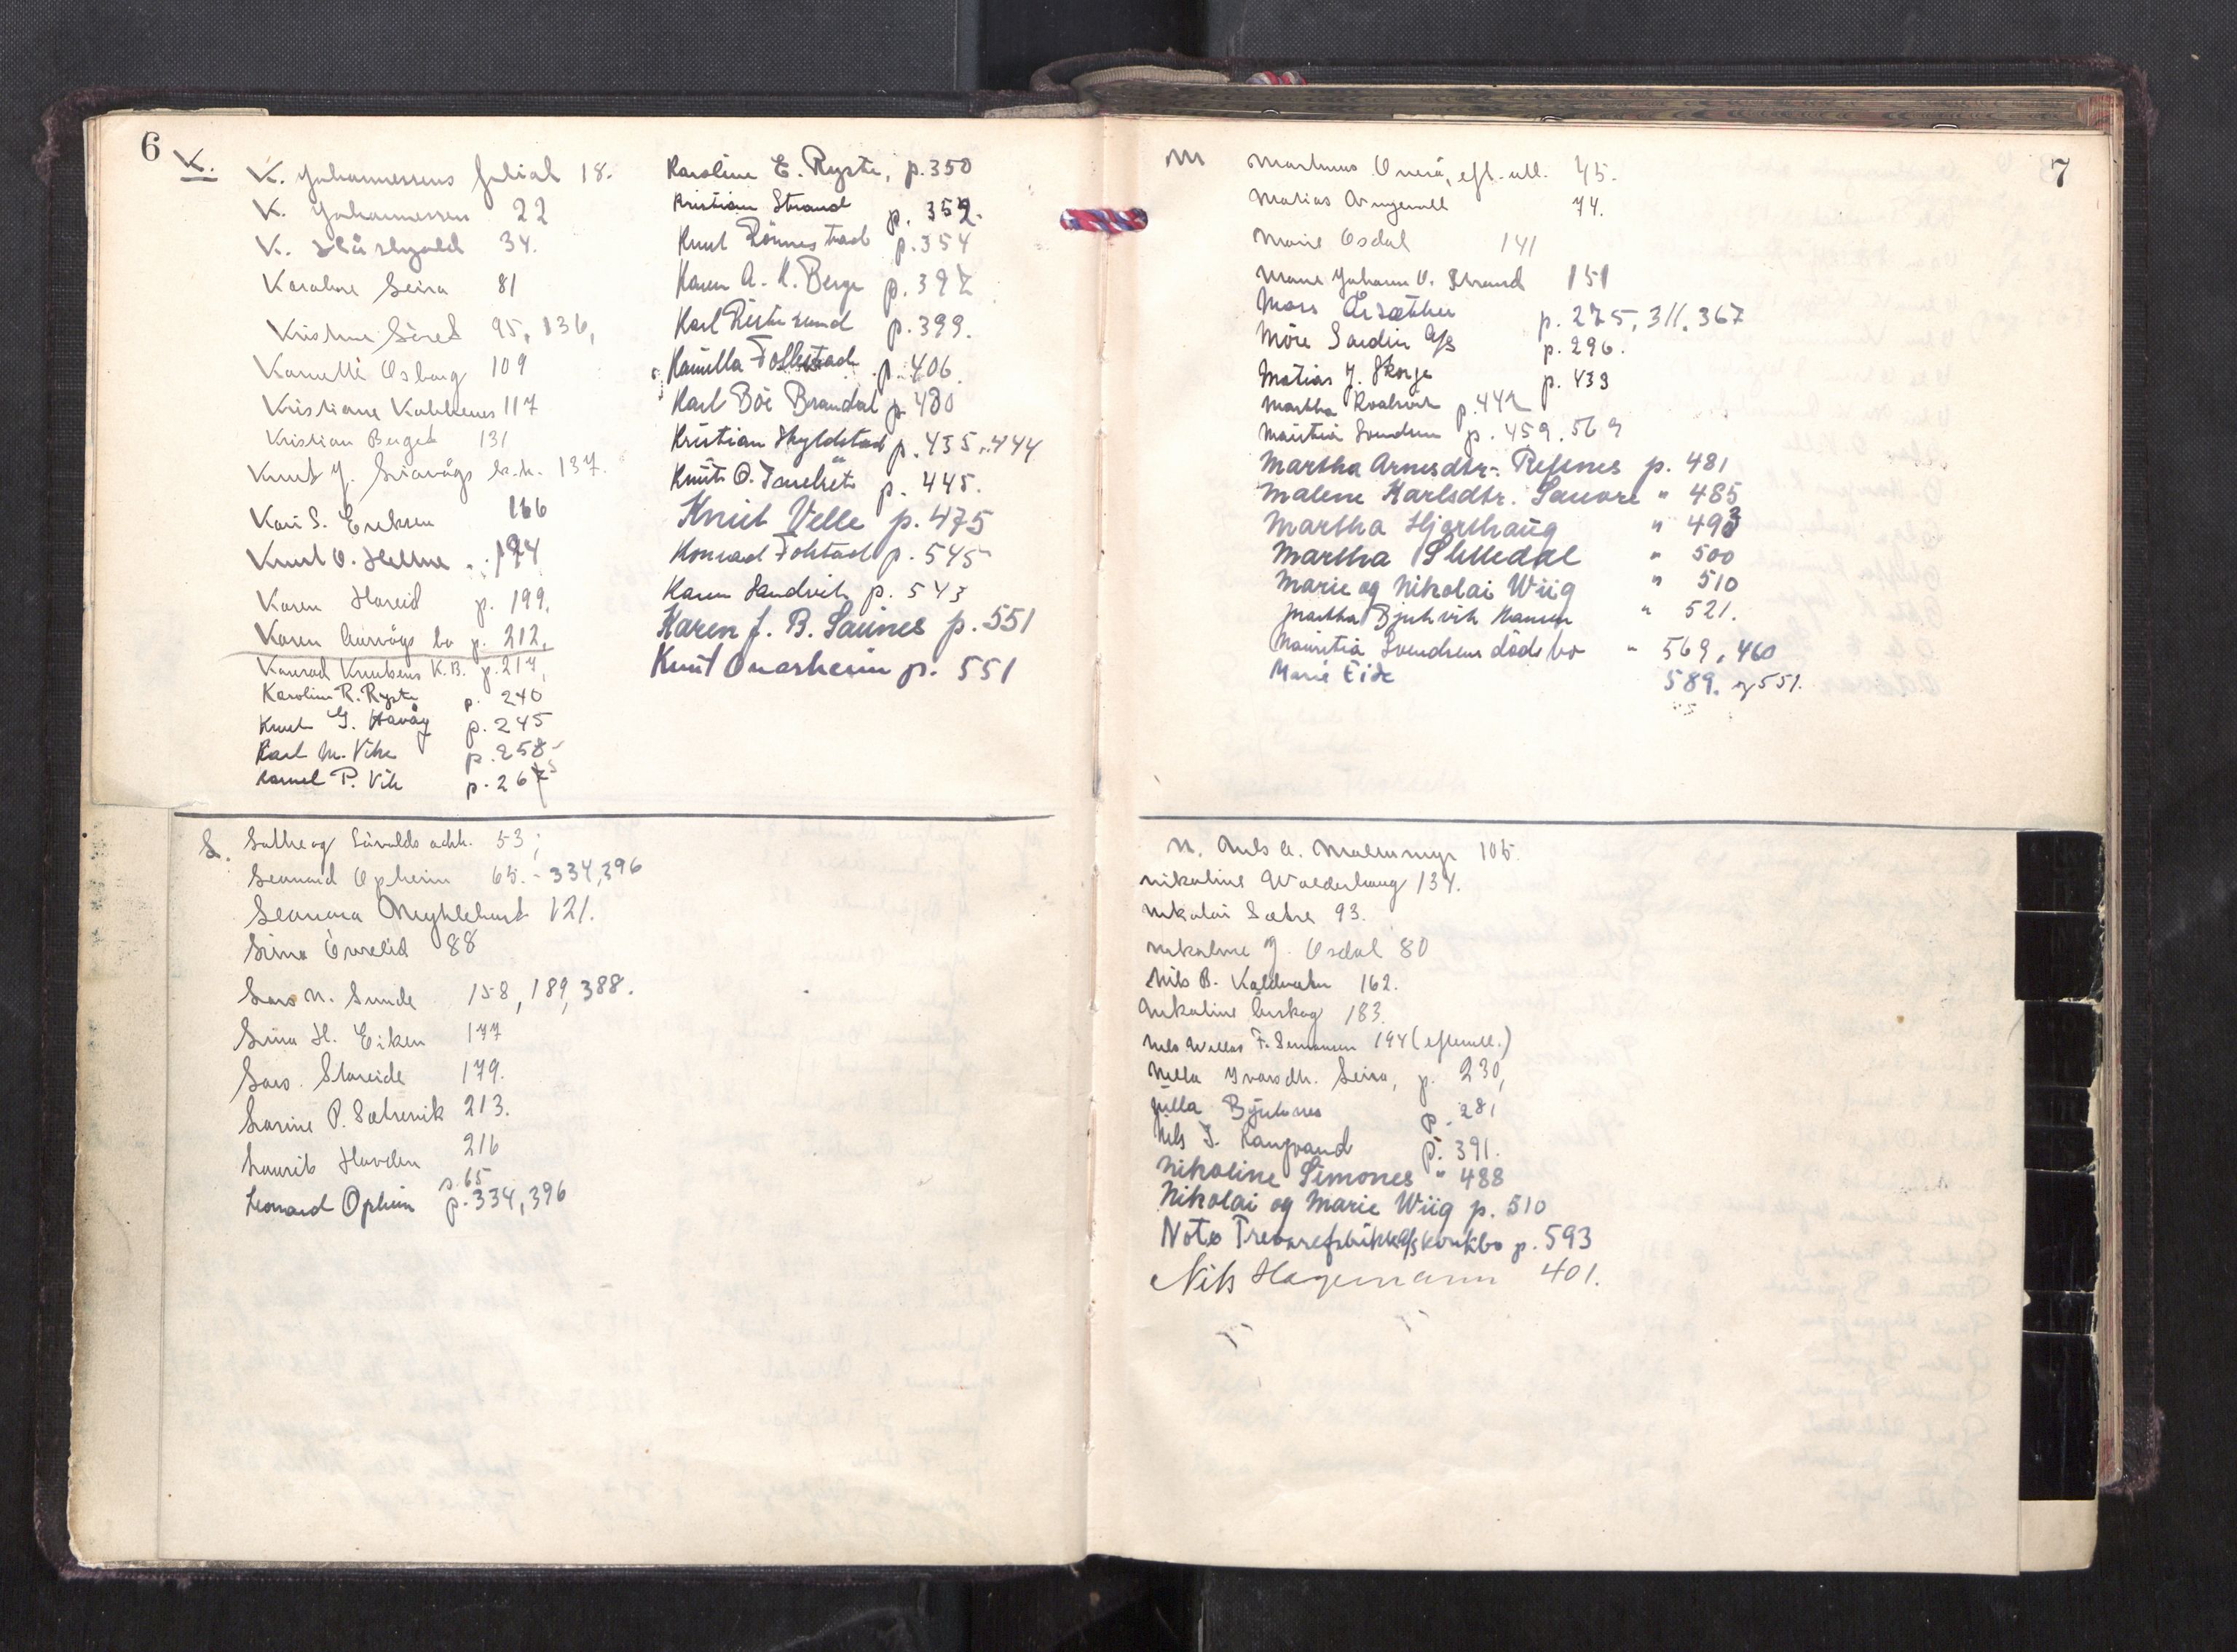 6
K.
K. Johannessens filial 18.
K. Johannessen 22
K. Hårskjold 34.
Karoline Leira 81
Kristine Såret 95, 136,
Kornelli Osborg 109
Kristiane Kobbenes 117
Kristian Berget 131
Knut J. Liavågs k.h. 137.
Kari S. Eriksen 166
Knut O. Heltne 194
Karen Hareid p. 199.
Karen Aurvågs bo p. 212.
Konrad Knutsens K.B. p. 217,
Karoline R. Ryste p. 240
Knut G. Havåg p. 245
Karl M. Vike p. 258
Kornel P. Vik p. 267
Karoline E. Ryste, p. 350
Kristian Strand p. 352.
Knut Rönnestad p. 354
Karen A. K. Berge p. 397
Karl Riste sund p. 399.
Kamilla Follestad p. 406.
Karl Böe Brandal p. 430
Kristian Skyldstad p. 435, 444
Knut O. p. 445.
Knut Velle p. 475
Konrad Folstad p. 545
Karen Sandvik p. 543
Karen J. B. Saunes p. 551
Knut Onarheim p. 551
L.
Lothe og Lövolds adv. 53;
Leonard Opheim 65. - 334, 396
Leonora Myklebust 121.
Lina Överlid 88
Lars N. Sunde 158, 189, 388.
Lina H. Eiken 177
Lars Slareide 179.
Larine P. Sætrevik 213.
Laurits Havden 216
p. 65
Leonard Opheim p. 334, 396
7
M
Martinus Overå, efl. utl. 45.
Matias 74.
Marie Osdal 141
Marie Johann O. Strand 151
Mons Årsæther p. 275, 311, 367
Möre Sardin A/S p. 296.
Matias J. Skorge p. 433
Martha Roalsvik p. 442
Mauritia Svendsen p. 459, 569
Martha Arnesdtr. Refsnes p. 481
Malene Karlsdtr. Sauore " 485
Martha Hjorthaug " 493
Martha Slettedal " 500
Marie og Nikolai Wiig " 510
Martha Bjuhvik Hansen " 521.
Mauritia Svendsens dödsbo " 569, 460
Marie Eide 589. og 551.
N. Nils A. Mallemyr 105.
Nikoline Walderhaug 134.
Nikolai Sætre 93.
Nikoline J. Osdal 80
Nils B. Kaldvatn 162.
Nikoline Aurskog 183.
Nils F. Simonsen 194 (eftermll.)
Nella Ivarsdtr. Leira, p. 230,
Julla Bjutnes p. 281
Nils J. Langvand p. 391.
Nikoline Simones " 488
Nikolai og Marie Wiig p. 510
Noto Trevarefabrikk A/S konkbo p. 593
Nils Hagemann 401.